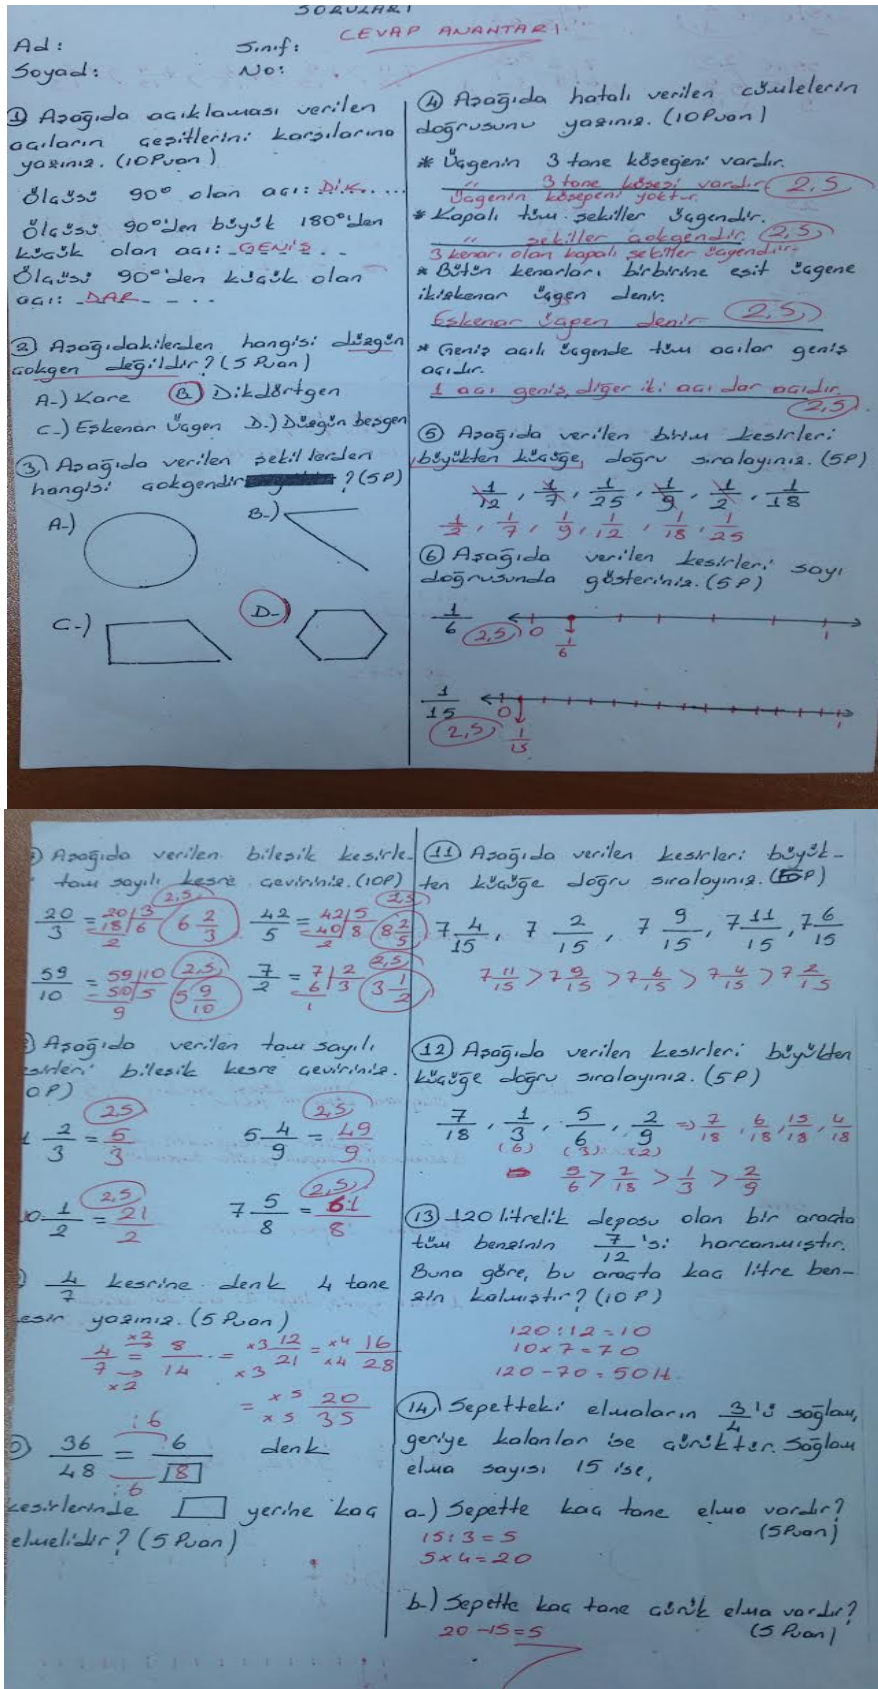 SORULARI
CEVAP ANAHTARI
Ad:
Sınıf:
Soyad:
No:
1) Aşağıda açıklaması verilen
açıların çeşitlerini karşılarına
yazınız. (10 Puan)
Ölçüsü 90° olan açı: DİK.....
Ölçüsü 90°'den büyük 180°'den
küçük olan açı:-GENİŞ- . .
Ölçüsü 90°'den küçük olan
açı: -DAR- - . .
2) Aşağıdakilerden hangisi düzgün
çokgen değildir? (5 Puan)
A-) Kare B-) Dikdörtgen
C-) Eşkenar Üçgen D-) Düzgün beşgen
3) Aşağıda verilen şekillerden
hangisi çokgendir ? (5P)
A-)
B-)
C-)
D-)
4) Aşağıda hatalı verilen cümlelerin
doğrusunu yazınız. (10 Puan)
* Üçgenin 3 tane köşegeni vardır.
" 3 tane köşesi vardır. 2,5
Üçgenin köşegeni yoktur.
* Kapalı tüm şekiller üçgendir.
" şekiller çokgendir. 2,5
3 kenarı olan kapalı şekiller üçgendir.
* Bütün kenarları birbirine eşit üçgene
ikizkenar üçgen denir.
Eşkenar üçgen denir 2,5
* Geniş açılı üçgende tüm açılar geniş
açıdır.
1 açı geniş, diğer iki açı dar açıdır.
2,5
5) Aşağıda verilen birim kesirleri
büyükten küçüğe, doğru sıralayınız. (5P)
1/12, 1/7, 1/25, 1/9, 1/2, 1/18
1/2, 1/7, 1/9, 1/12, 1/18, 1/25
6) Aşağıda verilen kesirleri sayı
doğrusunda gösteriniz. (5P)
1/6 2,5 0 1/6 1
1/15 2,5 0 1/15 1
) Aşağıda verilen bileşik kesirle-
tam sayılı kesre çeviriniz. (10P)
20/3 = 20 3 18 6 2 2,5 6 2/3
42/5 = 42 5 40 8 2 2,5 8 2/5
59/10 = 59 10 50 5 9 2,5 5 9/10
7/2 = 7 2 6 3 1 2,5 3 1/2
) Aşağıda verilen tam sayılı
esirleri bileşik kesre çeviriniz.
0P)
1 2/3 = 5/3 2,5
5 4/9 = 49/9 2,5
0 1/2 = 21/2 2,5
7 5/8 = 61/8 2,5
) 4/7 kesrine denk 4 tane
esir yazınız. (5 Puan)
4/7 x2 x2 = 8/14 = x3 x3 12/21 = x4 x4 16/28
= x5 x5 20/35
:6
) 36/48 = 6/8 denk
:6
kesirlerinde □ yerine kaç
elmelidir? (5 Puan)
11) Aşağıda verilen kesirleri büyük-
ten küçüğe doğru sıralayınız. (5P)
7 4/15, 7 2/15, 7 9/15, 7 11/15, 7 6/15
7 11/15 > 7 9/15 > 7 6/15 > 7 4/15 > 7 2/15
12) Aşağıda verilen kesirleri büyükten
küçüğe doğru sıralayınız. (5P)
7/18, 1/3, 5/6, 2/9 ⇒ 7/18, 6/18, 15/18, 4/18
(6) (3) (2)
5/6 > 7/18 > 1/3 > 2/9
13) 120 litrelik deposu olan bir araçta
tüm benzinin 7/12 'si harcanmıştır.
Buna göre, bu araçta kaç litre ben-
zin kalmıştır? (10 P)
120:12=10
10x7=70
120-70=50 lt.
14) Sepetteki elmaların 3/4'ü sağlam,
geriye kalanlar ise çürüktür. Sağlam
elma sayısı 15 ise,
a-) Sepette kaç tane elma vardır?
(5 Puan)
15:3=5
5x4=20
b-) Sepette kaç tane çürük elma vardır?
(5 Puan)
20-15=5